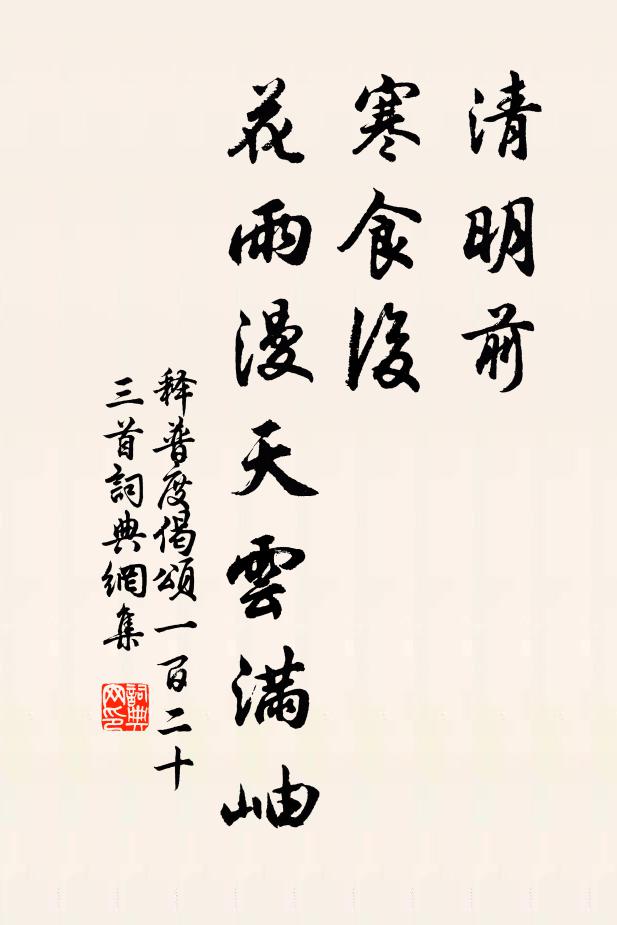 清明前
寒食後
花雨漫天雲满岫
释普度偈頌一百二十
三首詞典網集
詞典网印